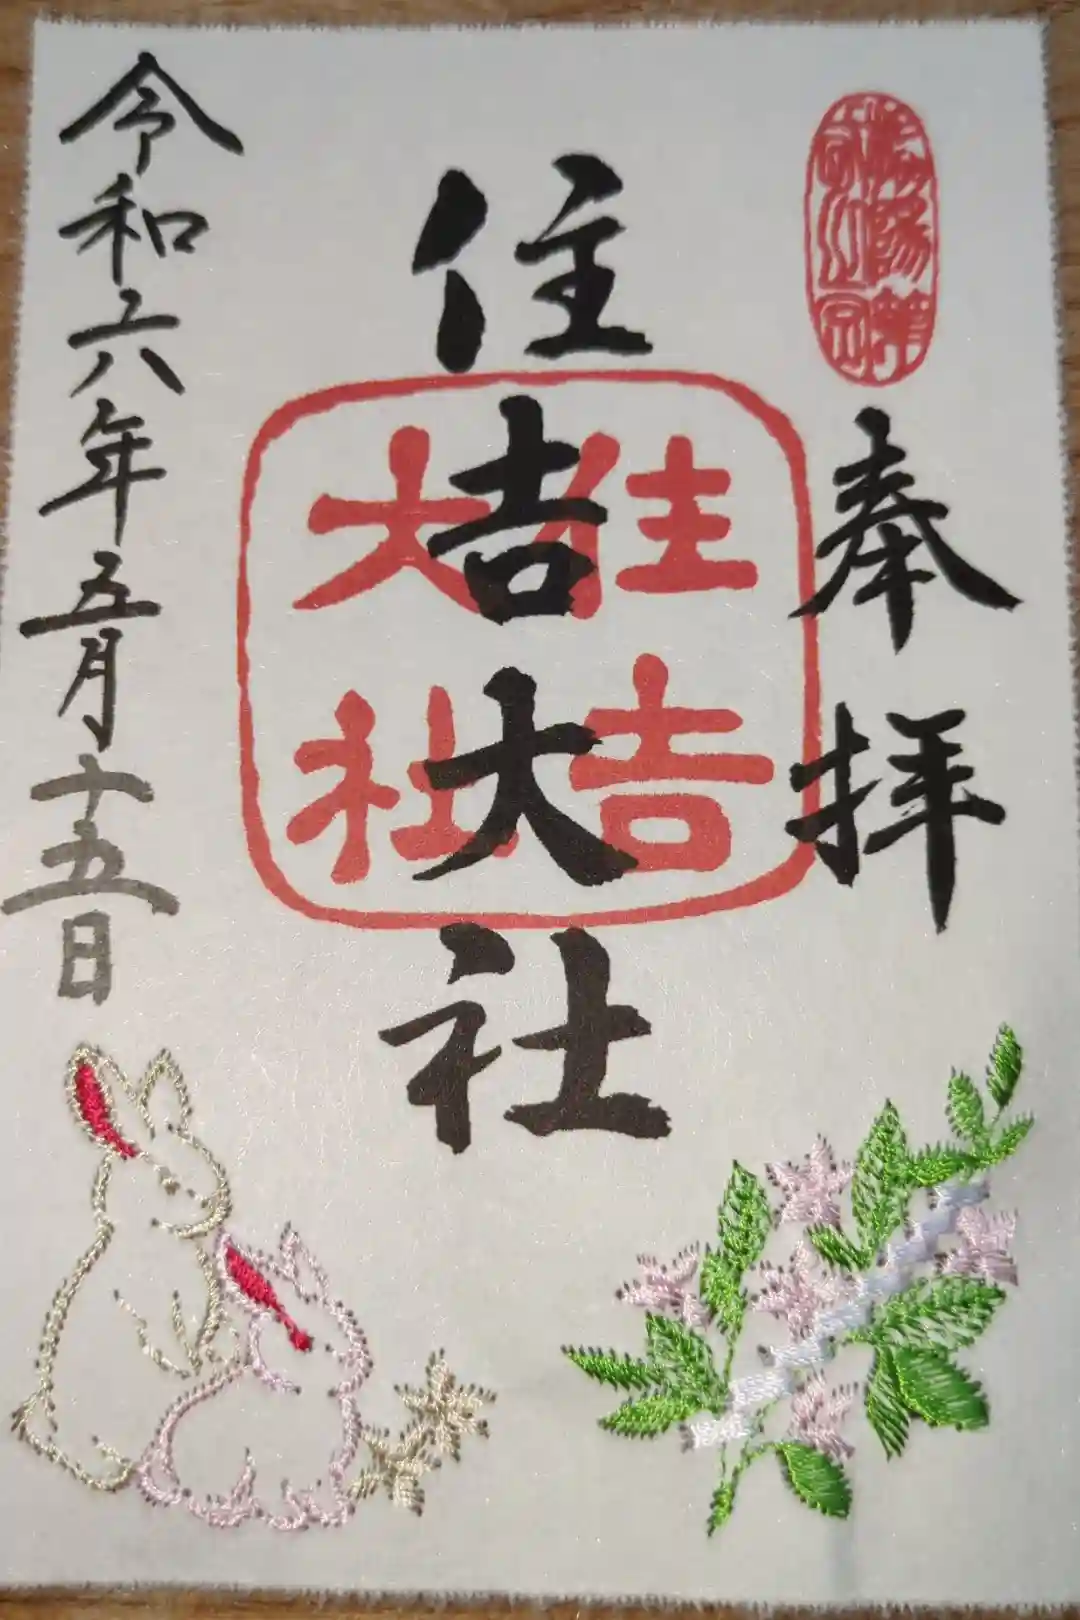 奉拝
住吉大社
住吉
大社
令和六年五月十五日